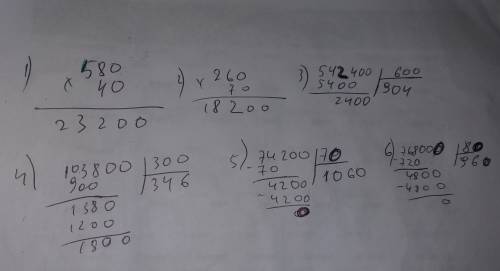 1) 580
× 40
23200
2) 260
× 70
18200
3) 542400 | 600
5400 904
2400
4) 103800 | 300
900 346
1380
1200
1800
5) 74200 | 70
-70 1060
4200
-4200
0
6) 76800 | 80
-720 960
4800
-4800
0